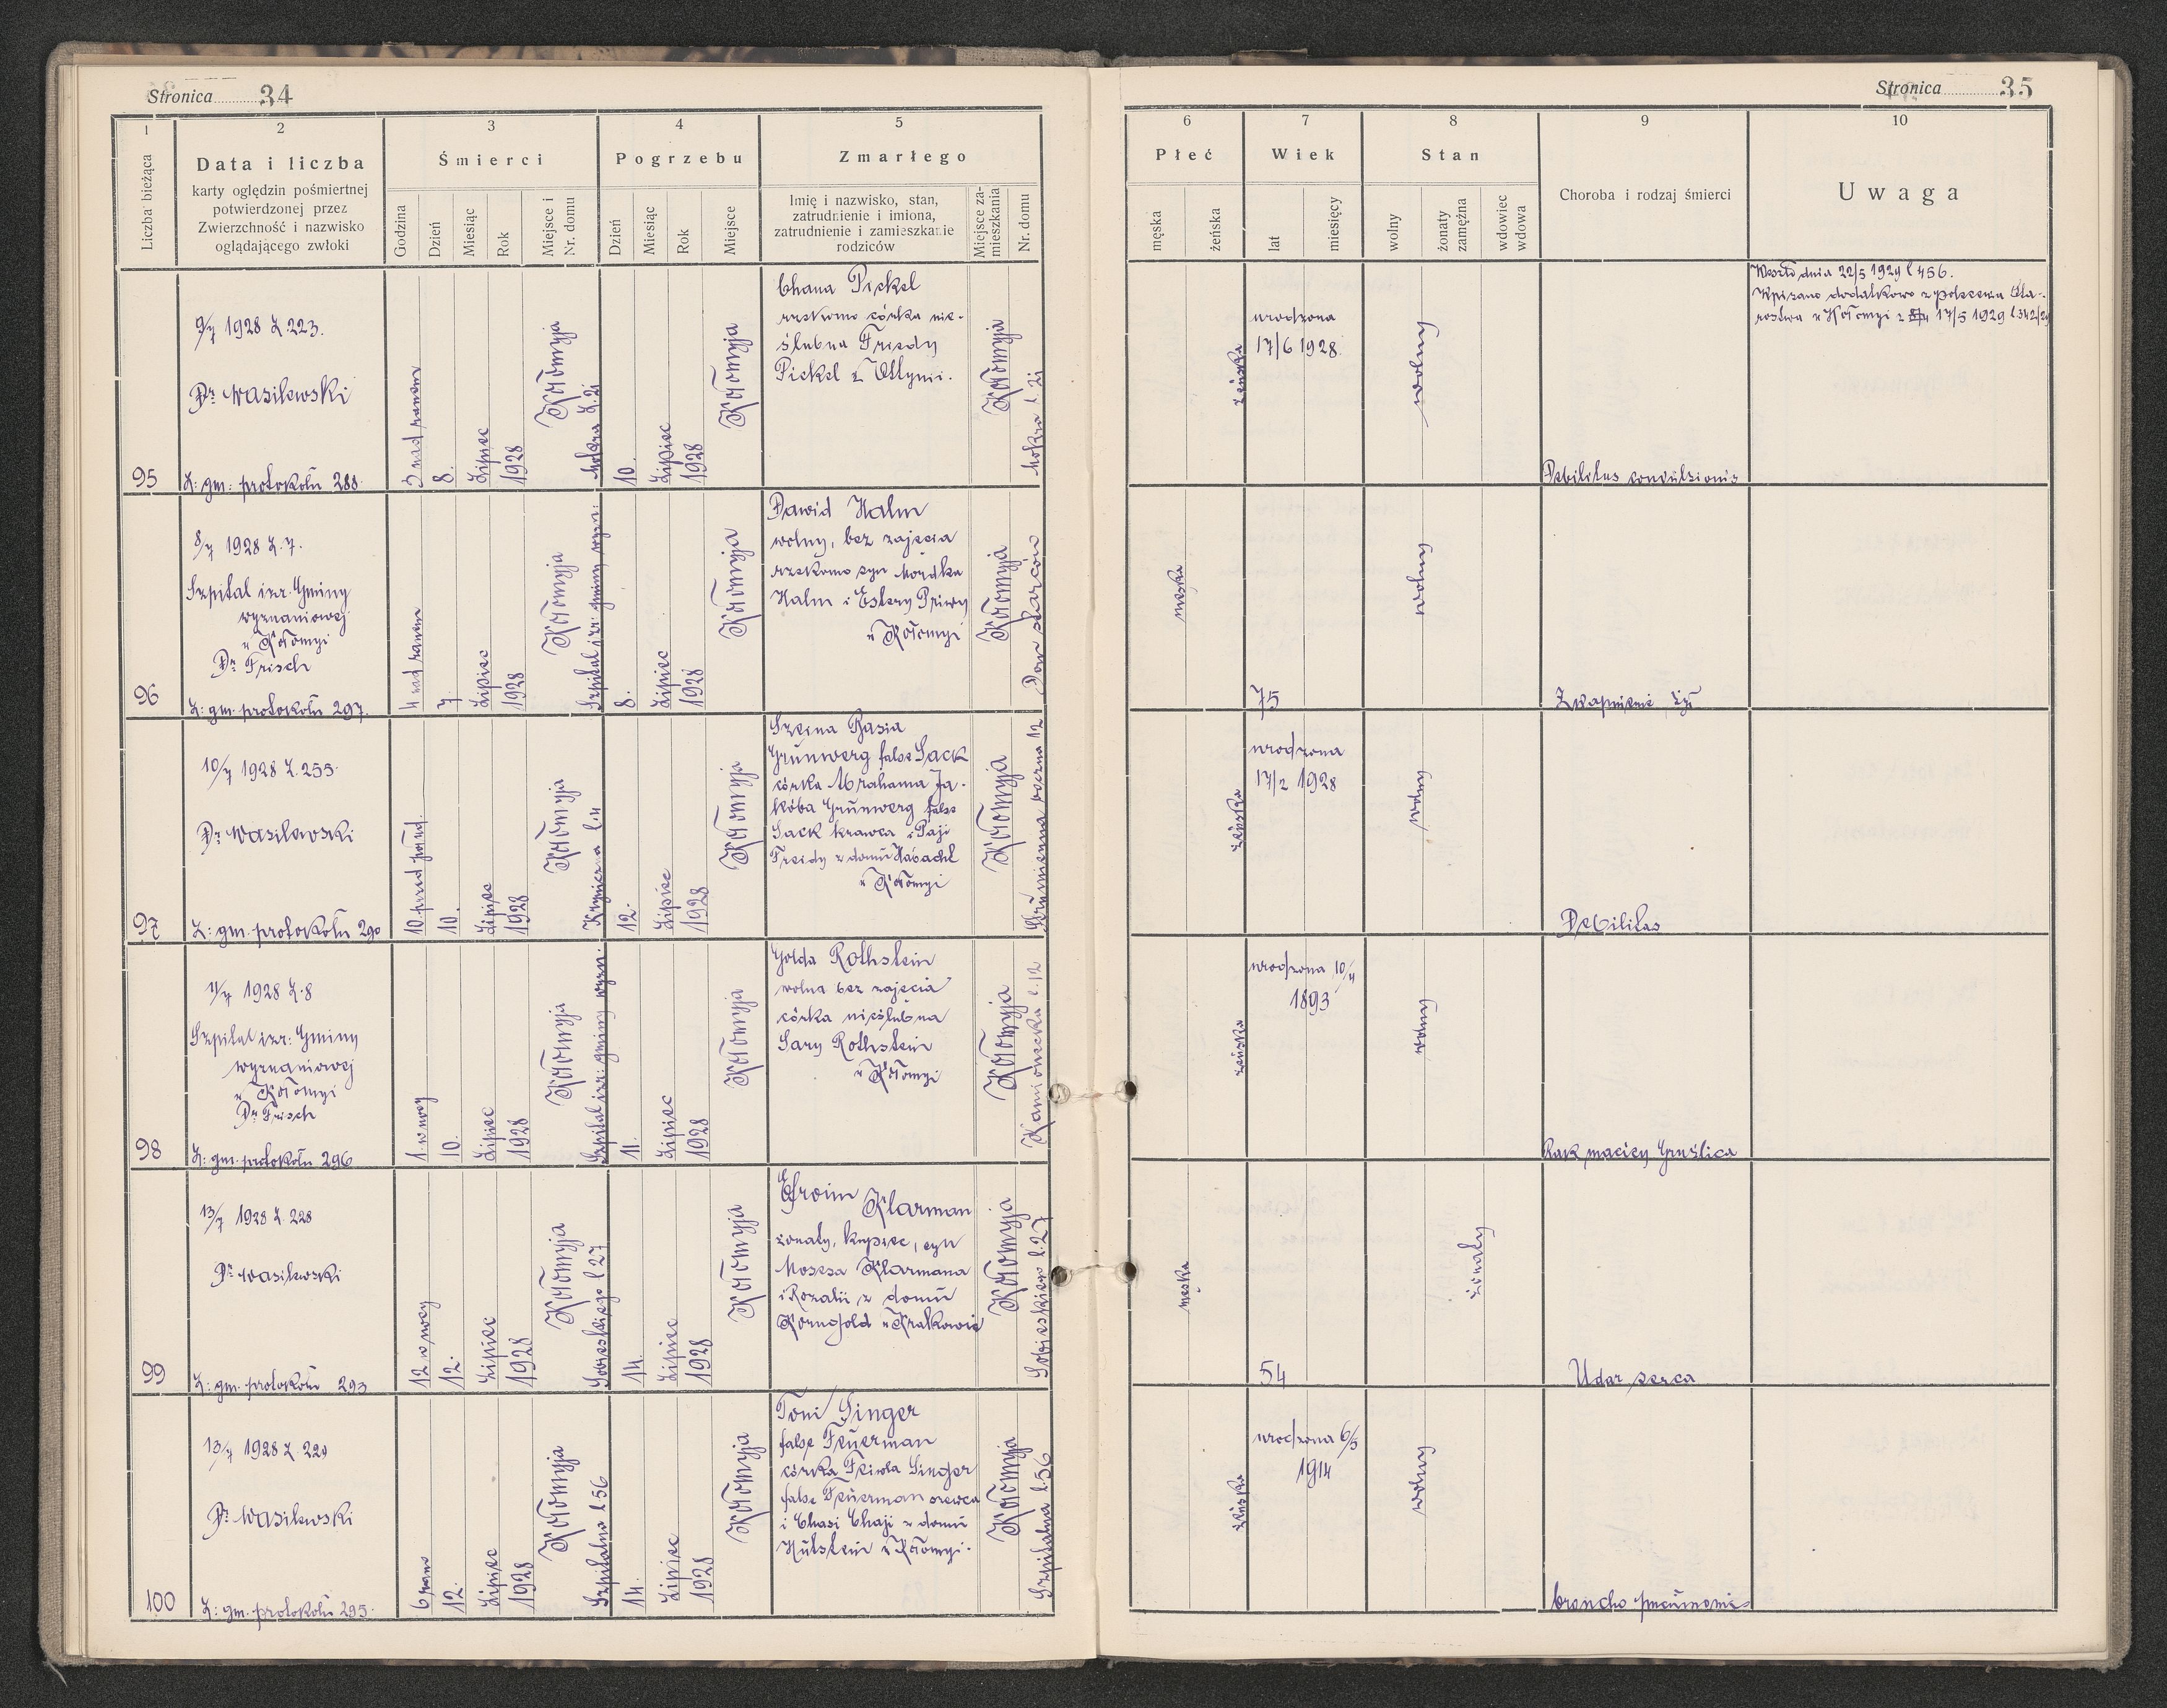 Stronica 34
1
2
3
4
5
Liczba bieżąca
Data i liczba
karty oględzin pośmiertnej
potwierdzonej przez
Zwierzchność i nazwisko
oglądającego zwłoki
Śmierci
Godzina
Dzień
Miesiąc
Rok
Miejsce i
Nr. domu
Pogrzebu
Dzień
Miesiąc
Rok
Miejsce
Zmarłego
Imię i nazwisko, stan,
zatrudnienie i imiona,
zatrudnienie i zamieszkanie
rodziców
Miejsce za-
mieszkania
Nr. domu
95
9/7 1928 L. 223.
Dr Wasilewski
L: gm: protokołu 288.
3 nad ranem
8.
Lipiec
1928
Kołomyja
Mokra L. 21
10.
Lipiec
1928
Kołomyja
Chana Pickel
rzekomo córka nie-
ślubna Friedy
Pickel z Ottynii.
Kołomyja
Mokra l. 21
96
8/7 1928 L. 7.
Szpital izr. Gminy
wyznaniowej
w Kołomyi
Dr Frisch
L: gm. protokołu 297.
4 nad ranem
7.
Lipiec
1928
Kołomyja
Szpital izr: gminy wyzn:
8.
Lipiec
1928
Kołomyja
Dawid Halm
wolny, bez zajęcia
rzekomo syn Mordka
Halm i Estery Priwy
w Kołomyi
Kołomyja
Dom starców
97
10/7 1928 L. 255.
Dr Wasilewski
L: gm. protokołu 290
10 przed połud.
10.
Lipiec
1928
Kołomyja
12.
Lipiec
1928
Kołomyja
Szeina Basia
Grünwerg false Sack
córka Abrahama Ja-
kóba Grünwerg false
Sack krawca i Paji
Freidy z domu
w Kołomyi
Kołomyja
12
98
11/7 1928 L. 8
Szpital izr: Gminy
wyznaniowej
w Kołomyi
Dr Frisch
L: gm. protokołu 296
1. w nocy
10.
Lipiec
1928
Kołomyja
Szpital izr: gminy wyzn.
11.
Lipiec
1928
Kołomyja
Golda Rothstein
wolna bez zajęcia
córka nieślubna
Sary Rothstein
w Kołomyi
Kołomyja
Kamionecka l. 12
99
13/7 1928 L. 228
Dr Wasilewski
L: gm. protokołu 293
12 w nocy
12.
Lipiec
1928
Kołomyja
Sobieskiego l 27
14.
Lipiec
1928
Kołomyja
Efroim Klarman
żonaty, kupiec, syn
Mosesa Klarmana
i Rozalii z domu
Korngold w Krakowie
Kołomyja
Sobieskiego l. 27
100
13/7 1928 L. 229
Dr Wasilewski
L: gm. protokołu 295.
6 rano
12.
Lipiec
1928
Kołomyja
Szpitalna l 56
14.
Lipiec
1928
Kołomyja
Toni Singer
false Feuerman
córka Feiwla Singer
false Feuerman szewca
i Chasi Chaji z domu
Hulstein w Kołomyi.
Kołomyja
Szpitalna l. 56
Stronica 35
6
7
8
9
10
Płeć
męska
żeńska
Wiek
lat
miesięcy
Stan
wolny
żonaty
zamężna
wdowiec
wdowa
Choroba i rodzaj śmierci
Uwaga
żeńska
urodzona
17/6 1928
wolny
Debilitas convulsionis
Weszło dnia 22/5 1929 l 456.
Wpisano dodatkowo z polecenia Sta-
rostwa w Kołomyi z 17/5 1929 l. 342/29
męska
75
wolny
Zwapnienie żył
żeńska
urodzona
17/2 1928
wolny
Debilitas
żeńska
urodzona 10/4
1893
wolny
Rak macicy Gruźlica
męska
54
żonaty
Udar serca
żeńska
urodzona 6/5
1914
wolny
broncho pneumonie